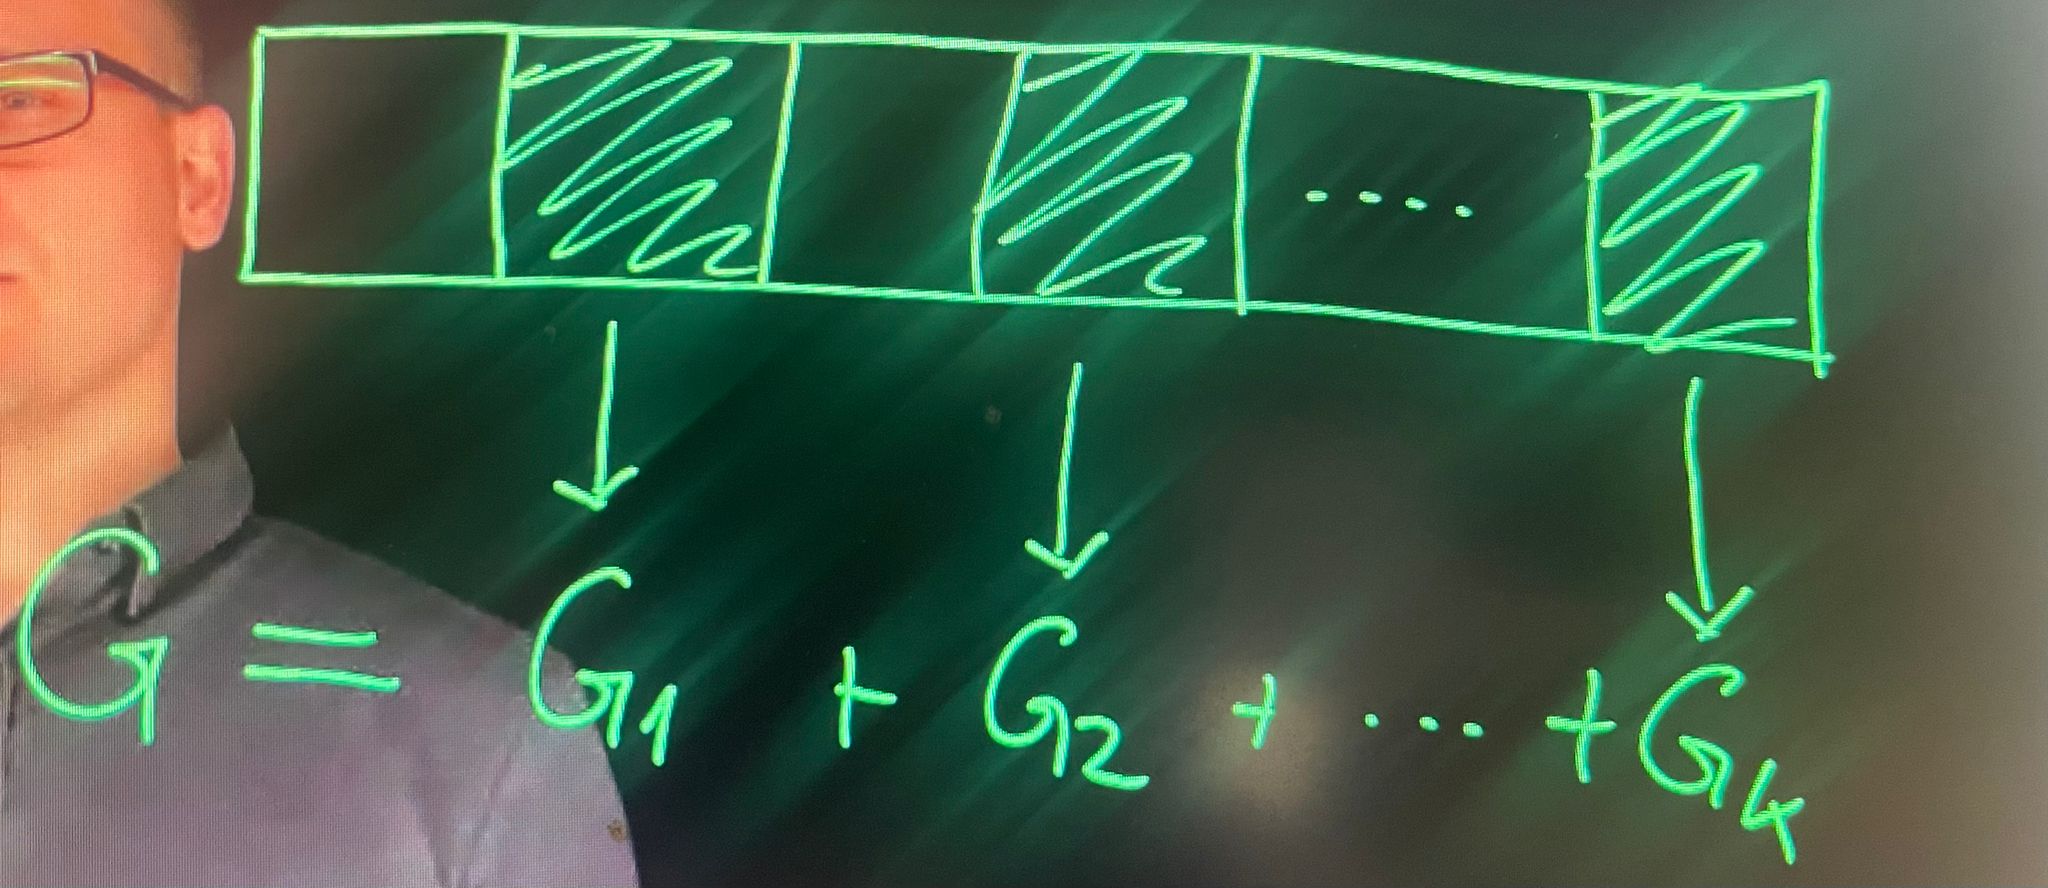 ....
G = G1 + G2 + ... + G4